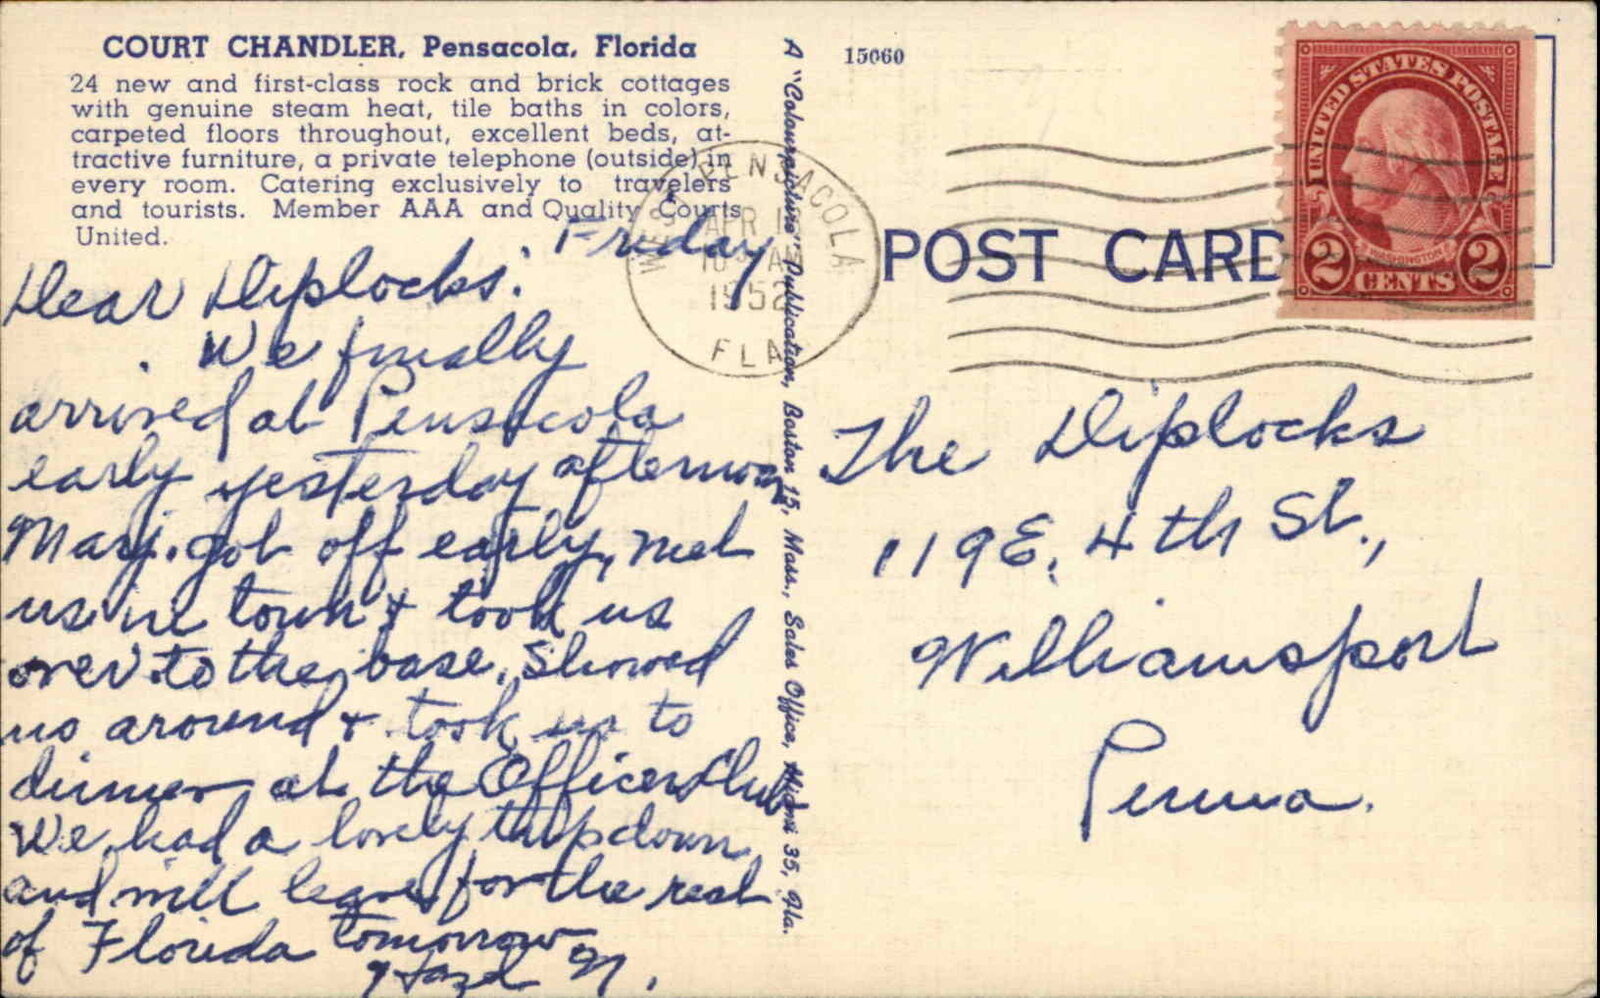 COURT CHANDLER, Pensacola, Florida
24 new and first-class rock and brick cottages
with genuine steam heat, tile baths in colors,
carpeted floors throughout, excellent beds, at-
tractive furniture, a private telephone (outside) in
every room. Catering exclusively to travelers
and tourists. Member AAA and Quality Courts
United.
Friday
Dear Diplocks:
We finally
arrived at Pensacola
early yesterday afternoon
Marj. got off early, met
us in town & took us
over to the base. Showed
us around & took us to
dinner at the Officers Club
We had a lovely trip down
and will leave for the rest
of Florida tomorrow
Hazel N.
A "Colourpicture" Publication, Boston 15, Mass., Sales Office, Miami 35, Fla.
15060
WEST PENSACOLA
APR 18
10 AM
1952
FLA
POST CARD
UNITED STATES POSTAGE
WASHINGTON
2 CENTS 2
The Diplocks
119 E. 4th St.,
Williamsport
Penna.